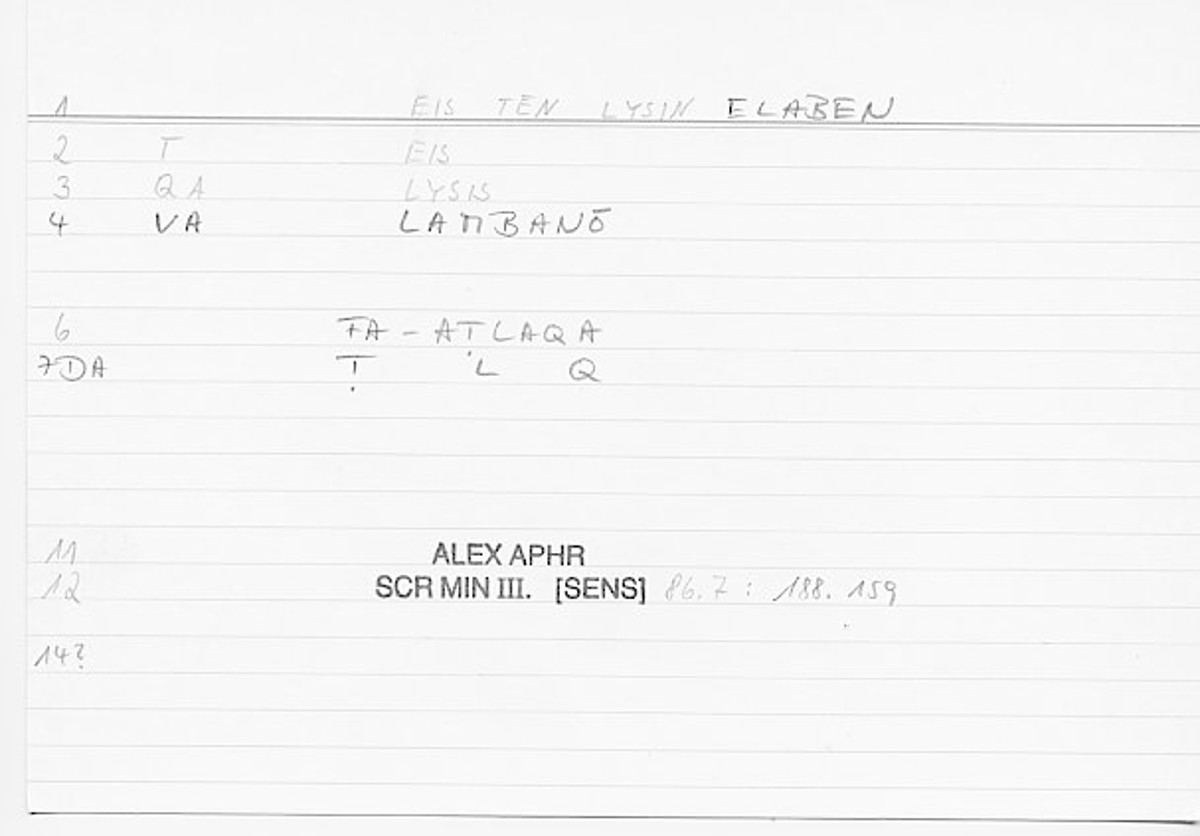 1 EIS TĒN LYSIN ELABEN
2 T EIS
3 QA LYSIS
4 VA LAMBANŌ
6 FA - AṬLAQA
7DA Ṭ L Q
11 ALEX APHR
12 SCR MIN III. [SENS] 86.7 : 188. 159
14?